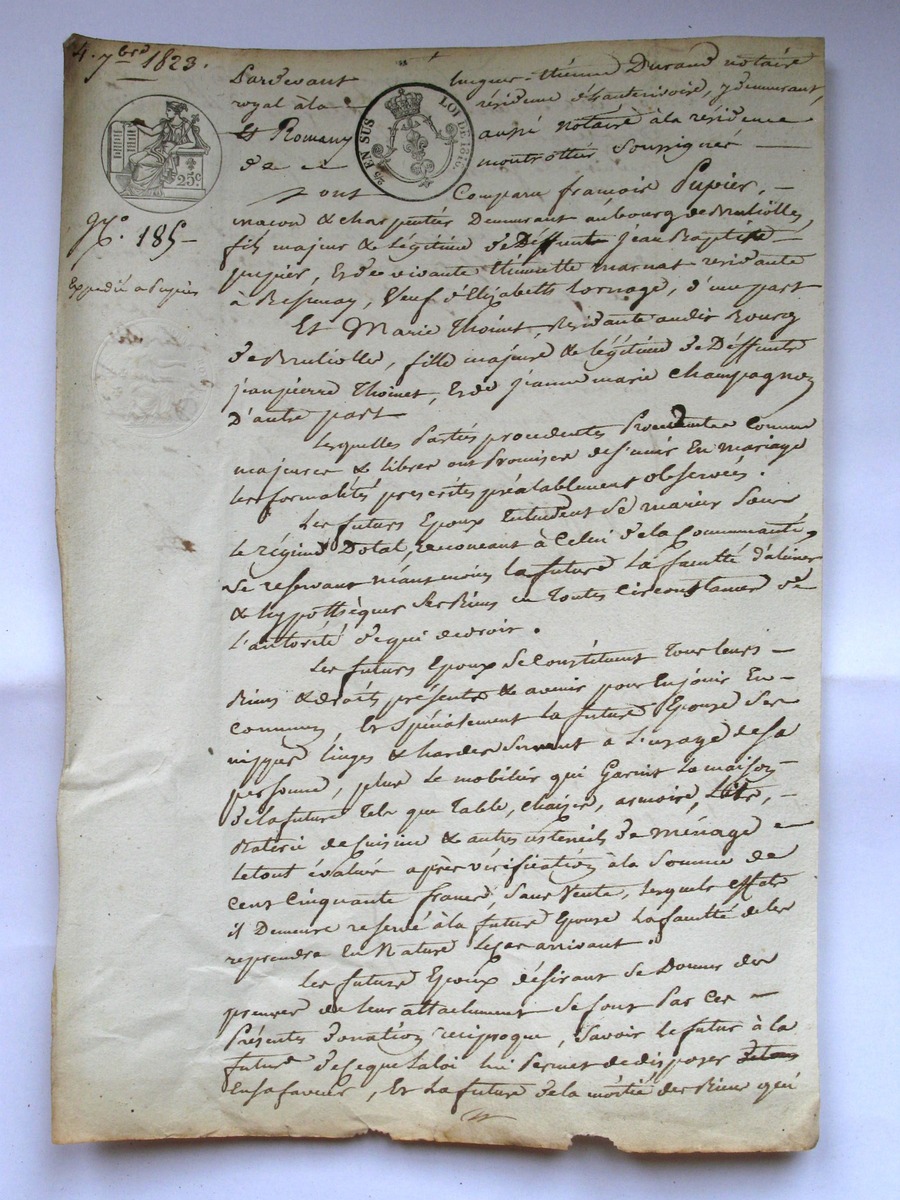 4. 7bre 1823.
Pardevant hugues-étienne Durand notaire
royal à la résidence d'hauterivoire, y demeurant,
Et Romany aussi notaire à la résidence
de montrottier soussignés
EN SUS LOI DE 1816.
25c.
N°. 185
Expédié a Pupier
ont Comparu françois Pupier,
maçon & charpentier Demeurant au bourg de Brulliolles,
fils majeur & légitime de Deffunte jean Baptiste
pupier, Et de vivante thimette marnat residante
à Bessenay, Veuf d'Elizabeth Lornage, d'une part
Et Marie Thoinet Residante audit Bourg
de Brulliolle, fille majeure & légitime de Deffunte
jeanpierre Thoinet, Et de jeanne marie Champagnon
D'autre part
Lesquelles Parties procedentes Procedentes Comme
majeures & libres ont Promises de s'unir En mariage
les formalités prescrites préalablement observées.
Les futurs Epoux Entendent Se marier Sous
le régime Dotal, renonçant à Celui de la Communauté,
se reservant néantmoins la future la faculté d'aliéner
& hypothéquer ses Biens en toutes Circonstances de
l'autorité de qui de droit.
Les futurs Epoux se Constituent Tous leurs
Biens & droits présents & avenir pour En jouir En
commun, Et Spécialement la future Epouse Ses
nippes linges & hardes servant a L'usage de sa
personne, plus le mobilier qui Garnit la maison
de la future tels que Table, Chaises, armoire, Lits,
Baterie de Cuisine & autres ustensils de ménage
le tout évalué après vérification à la Somme de
Cent Cinquante francs, Sans Vente, lesquels effets
il Demeure reservé à la future Epouse La faculté de les
reprendre En Nature le cas arrivant.
Les futurs Epoux désirant se Donner des
preuves de leur attachement se font Par Ces
Présentes donation réciproque, Savoir le futur à la
future de ce que La loi lui Permet de disposer
En sa faveur, Et La future de la moitié des Biens qui